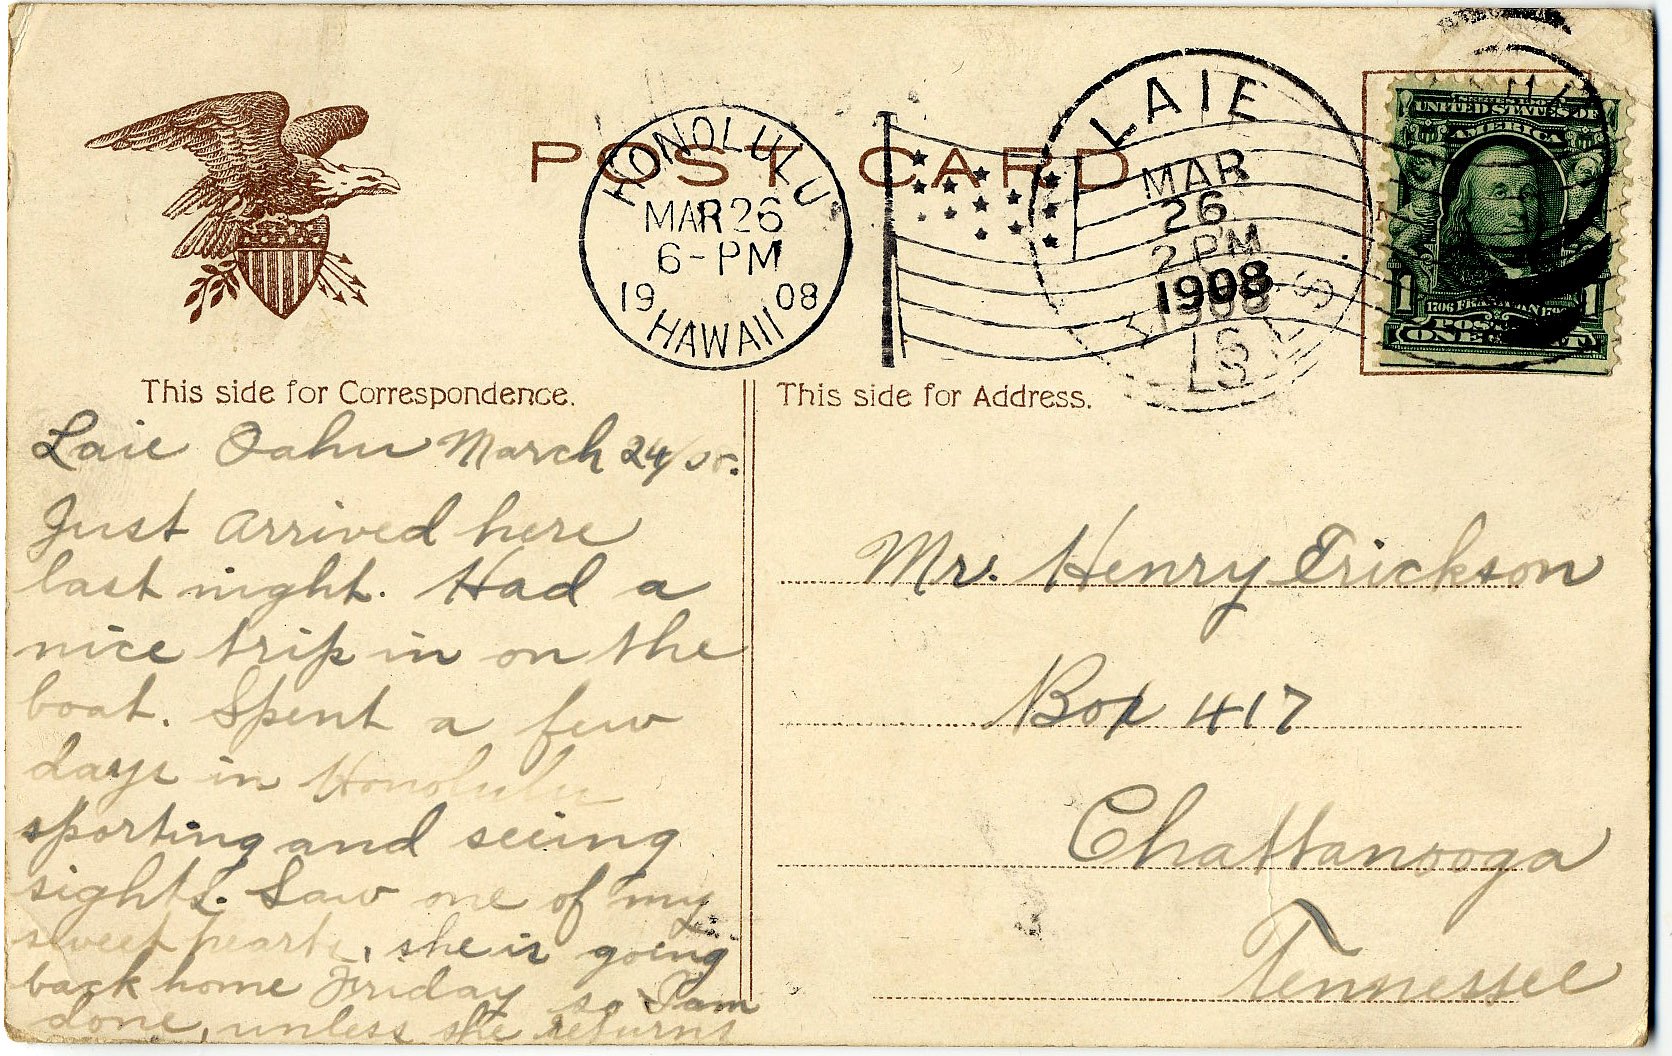 POST CARD
HONOLULU
MAR 26
6-PM
19 08
HAWAII
LAIE
MAR
26
2 PM
1908
1908
UNITED STATES OF
AMERICA
1 1
FRANKLIN
ONE
This side for Correspondence.
Laie Oahu March 24/08.
Just arrived here
last night. Had a
nice trip in on the
boat. Spent a few
days in Honolulu
sporting and seeing
sights. Saw one of my
sweet hearts, she is going
back home Friday so I am
done, unless she returns
This side for Address.
Mr. Henry Erickson
Box 417
Chattanooga
Tennessee